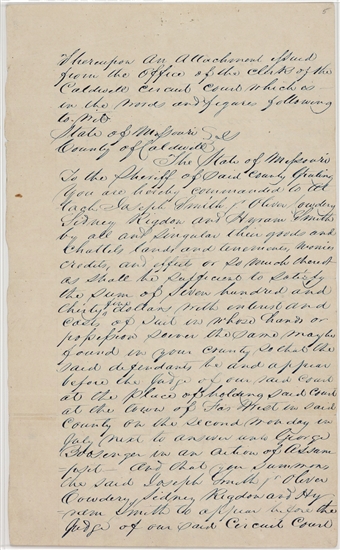 Thereupon An Attachment issued
from the Office of the Clerk of the
Caldwell Circuit Court which is
in the words and figures following
to Wit
State of Missouri
County of Caldwell
The State of Missouri
To the Sheriff of Said County Greeting
You are hereby commanded to At
tach Joseph Smith Jr Oliver Cowdery
Sidney Rigdon and Hyrum Smith
by all and singular their goods and
Chattels lands and tenements monies
credits, and effects or so much thereof
as shall be sufficient to satisfy
the sum of Seven hundred and
thirty five dollars with interest and
costs of suit in whose hands or
possession soever the same may be
found in your county so that the
said defendants be and appear
before the Judge of our said court
at the place of holding said court
at the town of Far West in said
County on the Second Monday in
July next to answer unto George
in an action of Assum
=psit - And that you Summons
the said Joseph Smith Jr Oliver
Cowdery Sidney Rigdon and Hy
rum Smith to appear before the
Judge of our said Circuit Court